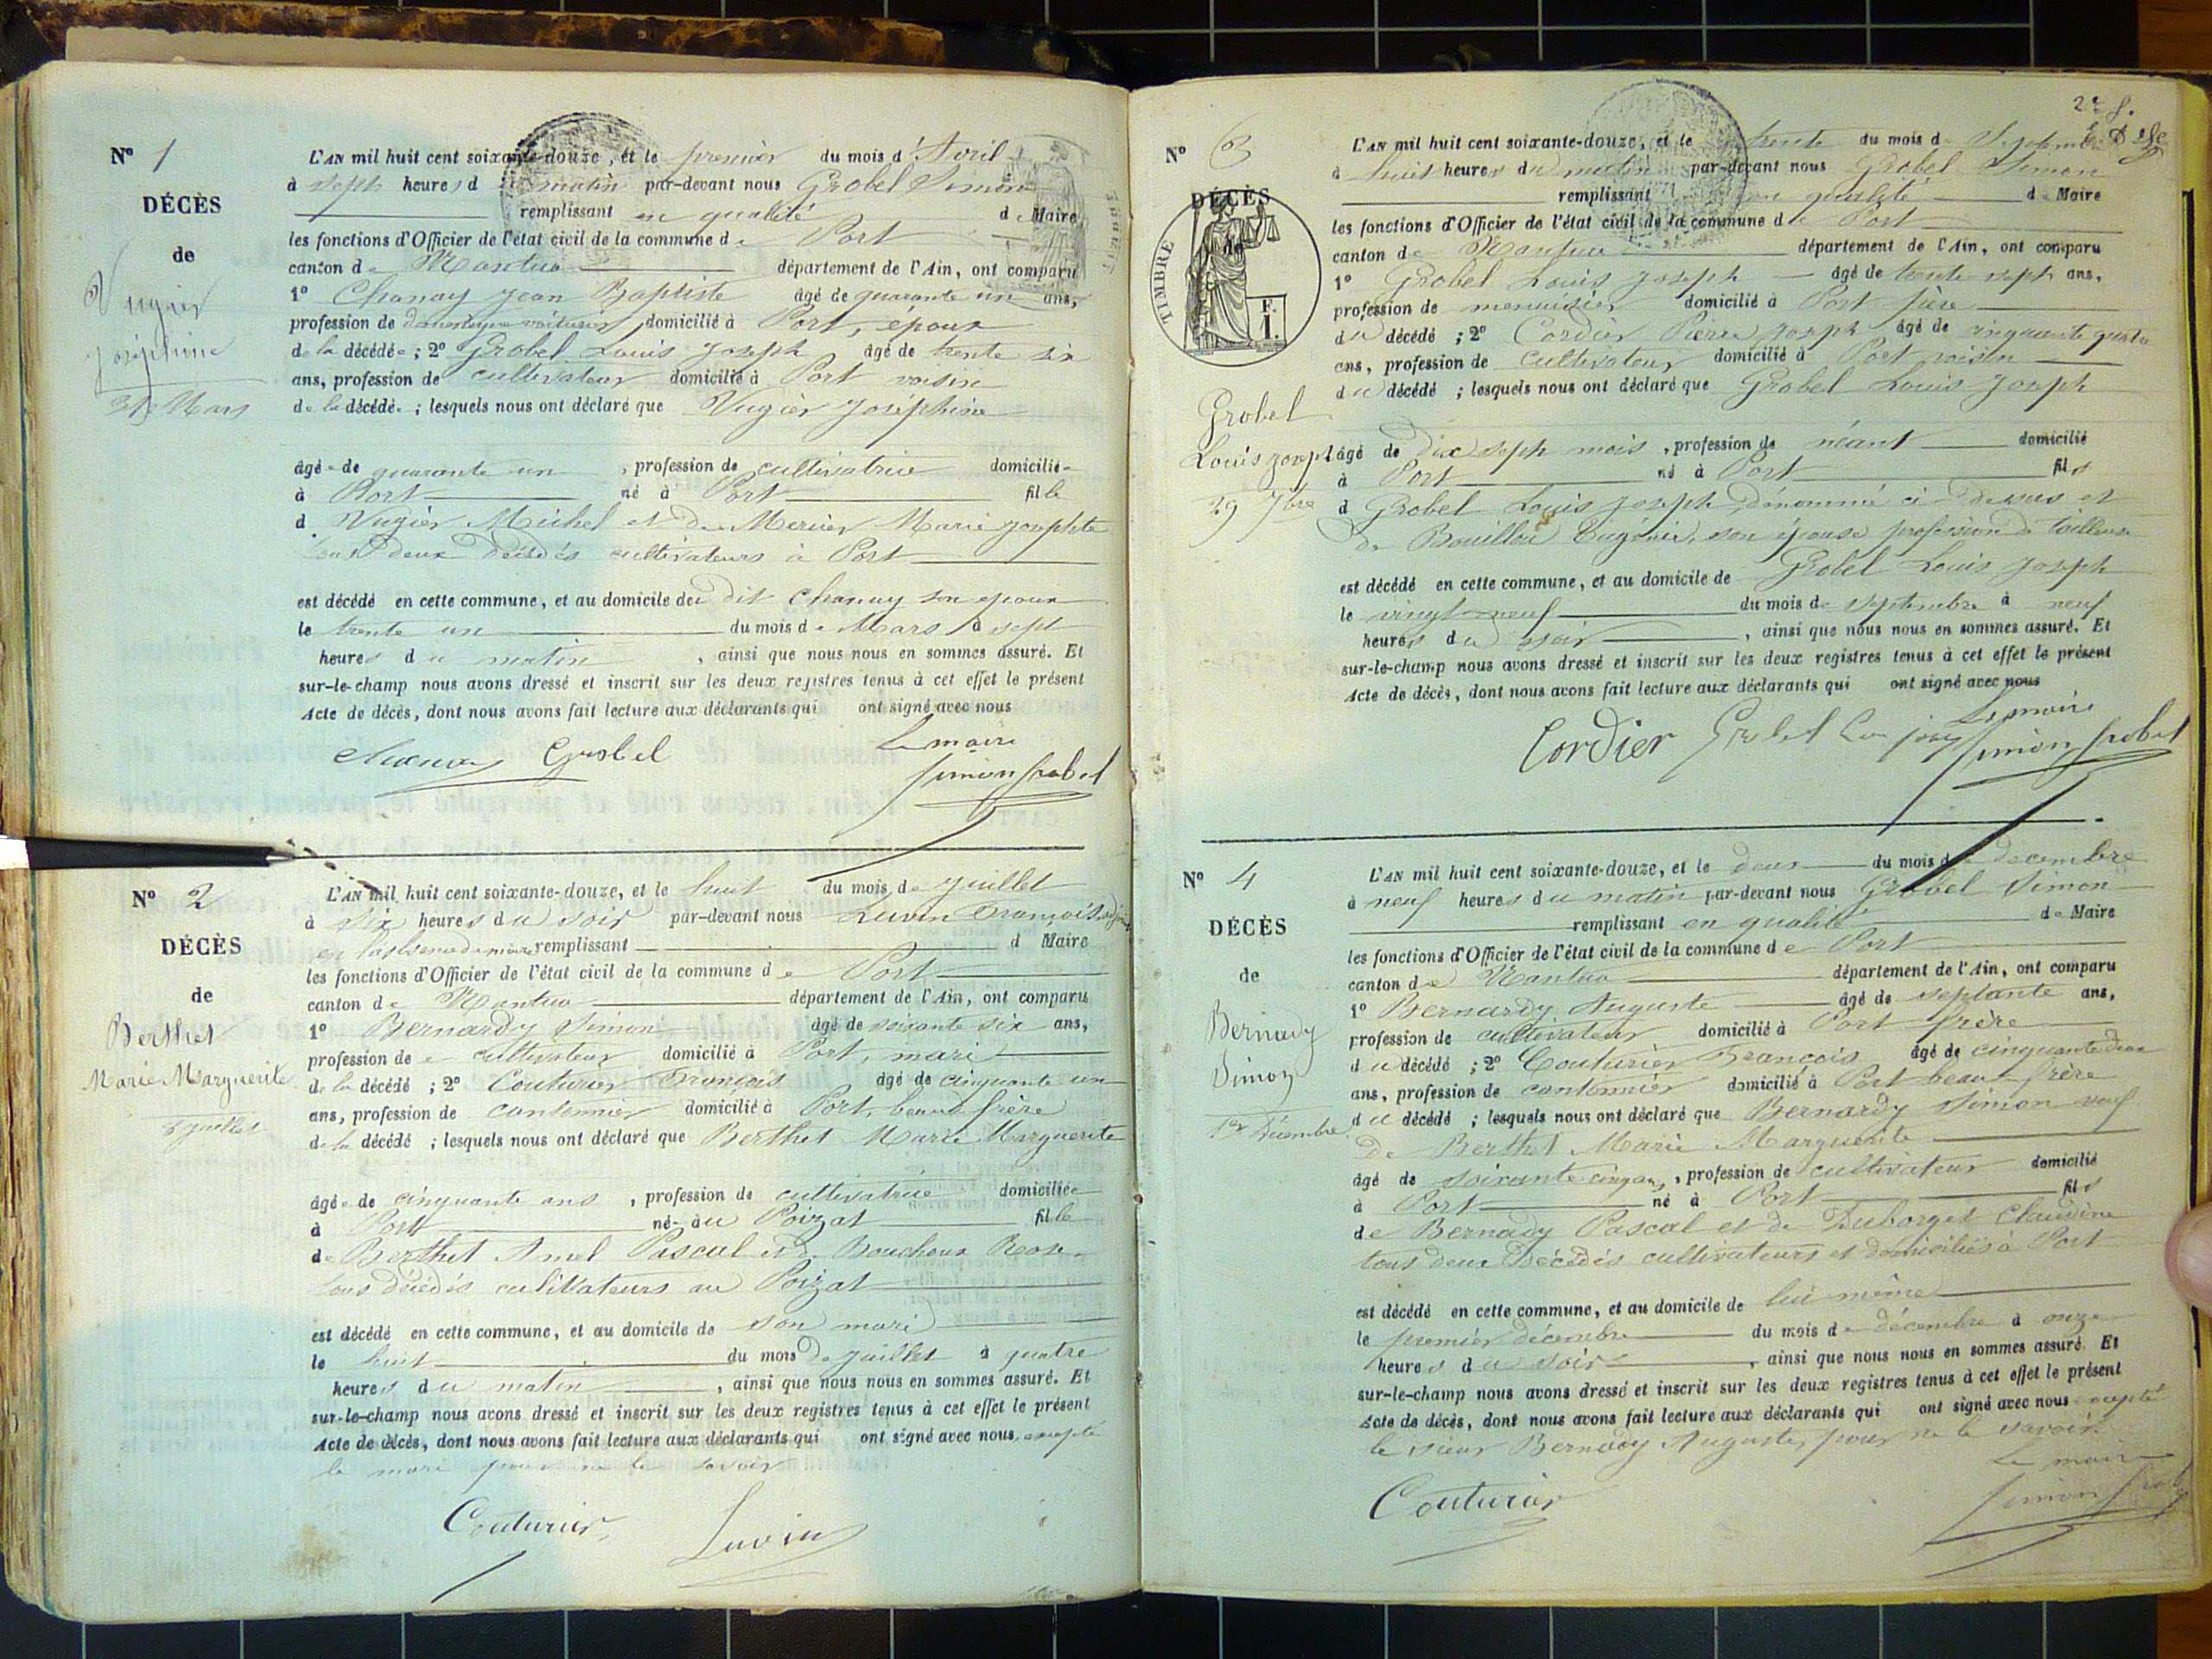 N° 1
DÉCÈS
de
Vugier
Joséphine
31 Mars
L'AN mil huit cent soixante-douze, et le premier du mois d'Avril
à sept heures du matin par-devant nous Grobel Simon
remplissant en qualité de Maire
les fonctions d'Officier de l'état civil de la commune de Port
canton de Nantua département de l'Ain, ont comparu
1° Chanay Jean Baptiste âgé de quarante un ans,
profession de voiturier domicilié à Port, époux
de la décédée; 2° Grobel Louis Joseph âgé de trente six
ans, profession de cultivateur domicilié à Port voisin
de la décédée; lesquels nous ont déclaré que Vugier Joséphine
âgée de quarante un, profession de cultivatrice domicilié
à Port né à Port fille
d. Vugier Michel et de Mercier Marie Josephte
tous deux décédés cultivateurs à Port
est décédé en cette commune, et au domicile du dit Chanay son epoux
le trente un du mois de Mars à sept
heures du matin, ainsi que nous nous en sommes assuré. Et
sur-le-champ nous avons dressé et inscrit sur les deux registres tenus à cet effet le présent
Acte de décès, dont nous avons fait lecture aux déclarants qui ont signé avec nous
Grobel
Le maire
Simon Grobel
N° 2
DÉCÈS
de
Berthet
Marie Marguerite
8 juillet
L'AN mil huit cent soixante-douze, et le huit du mois de Juillet
à six heures du soir par-devant nous Luvin François
remplissant d Maire
les fonctions d'Officier de l'état civil de la commune de Port
canton de Nantua département de l'Ain, ont comparu
1° Bernardy Simon âgé de soixante six ans,
profession de cultivateur domicilié à Port, mari
de la décédé; 2° Couturier François âgé de cinquante un
ans, profession de cantonnier domicilié à Port, beau frère
de la décédé; lesquels nous ont déclaré que Berthet Marie Marguerite
âgée de cinquante ans, profession de cultivatrice domiciliée
à Port né au Poizat fille
de Berthet Amel Pascal et de Bouchoux Rose
tous décédés cultivateurs au Poizat
est décédé en cette commune, et au domicile de son mari
le huit du mois de Juillet à quatre
heures du matin, ainsi que nous nous en sommes assuré. Et
sur-le-champ nous avons dressé et inscrit sur les deux registres tenus à cet effet le présent
Acte de décès, dont nous avons fait lecture aux déclarants qui ont signé avec nous, excepté
le mari pour ne le savoir
Couturier
Luvin
N° 3
DÉCÈS
de
TIMBRE
Grobel
Louis Joseph
29 7bre
L'AN mil huit cent soixante-douze, et le trente du mois de Septembre
à huit heures du matin par-devant nous Grobel Simon
remplissant en qualité de Maire
les fonctions d'Officier de l'état civil de la commune de Port
canton de Nantua département de l'Ain, ont comparu
1° Grobel Louis Joseph âgé de trente sept ans,
profession de menuisier domicilié à Port père
du décédé; 2° Cordier Pierre Joseph âgé de cinquante quatre
ans, profession de cultivateur domicilié à Port voisin
du décédé; lesquels nous ont déclaré que Grobel Louis Joseph
âgé de dix sept mois, profession de néant domicilié
à Port né à Port fils
d Grobel Louis Joseph dénommé ci-dessus et
de Bouillou Eugénie, son épouse profession de tailleuse
est décédé en cette commune, et au domicile de Grobel Louis Joseph
le vingt neuf du mois de Septembre à neuf
heures du soir, ainsi que nous nous en sommes assuré. Et
sur-le-champ nous avons dressé et inscrit sur les deux registres tenus à cet effet le présent
Acte de décès, dont nous avons fait lecture aux déclarants qui ont signé avec nous
Cordier Grobel
Le maire
Simon Grobel
N° 4
DÉCÈS
de
Bernady
Simon
1er Décembre
L'AN mil huit cent soixante-douze, et le deux du mois de decembre
à neuf heures du matin par-devant nous Grobel Simon
remplissant en qualité de Maire
les fonctions d'Officier de l'état civil de la commune de Port
canton de Nantua département de l'Ain, ont comparu
1° Bernardy Auguste âgé de septante ans,
profession de cultivateur domicilié à Port frère
du décédé; 2° Couturier François âgé de cinquante deux
ans, profession de cantonnier domicilié à Port beau-frère
du décédé; lesquels nous ont déclaré que Bernardy Simon veuf
De Berthet Marie Marguerite
âgé de soixante cinq ans, profession de cultivateur domicilié
à Port né à Port fils
de Bernady Pascal et de Duborget Claudine
tous deux Décédés cultivateurs et domiciliés à Port
est décédé en cette commune, et au domicile de lui même
le premier décembre du mois de décembre à onze
heures du soir, ainsi que nous nous en sommes assuré. Et
sur-le-champ nous avons dressé et inscrit sur les deux registres tenus à cet effet le présent
Acte de décès, dont nous avons fait lecture aux déclarants qui ont signé avec nous excepté
le sieur Bernady Auguste, pour ne le savoir
Le maire
Couturier
Simon Grobel